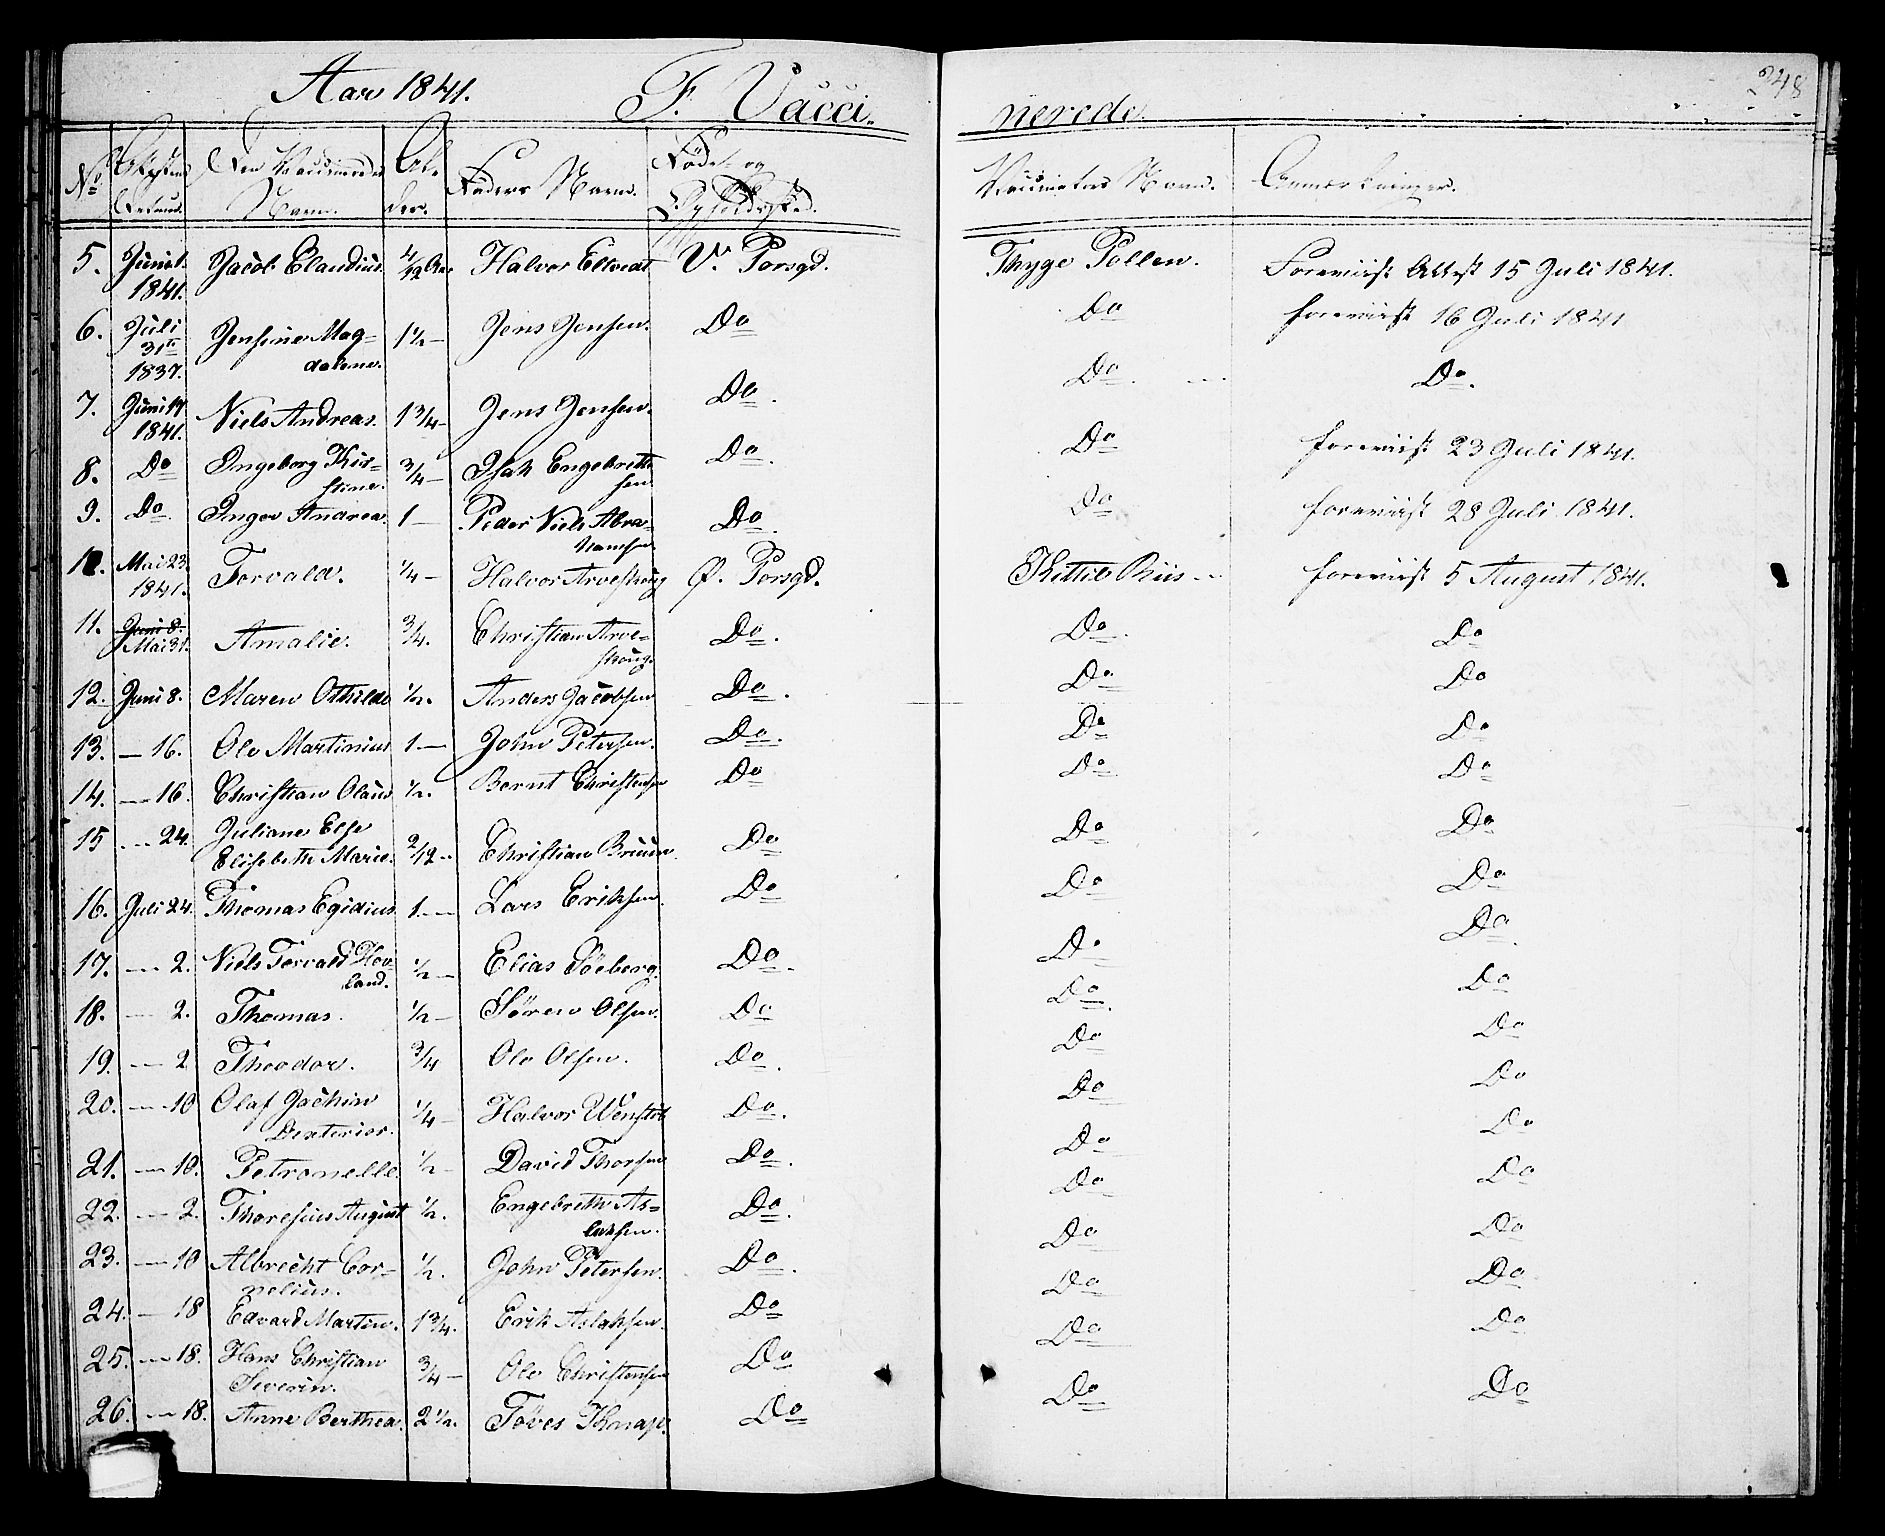 Aar 1841. F. Vacci- nerede. 248
No Attestens Datum. Den Vaccineredes Navn. Alder. Faders Navn. Føde- og Opholdssted. Vaccinators Navn. Anmærkninger.
5. Juni 1. 1841. Jacob Claudius. 4/12 Aar Halvor V. Porsgd. Thyge Pollen. Foreviist Attest 15 Juli 1841.
6. Juli 31te 1837. Jensine Mag-
dalene. 1½ — Jens Jensen. Do Do foreviist 16 Juli 1841
7. Juni 17 1841. Niels Andreas. 1¾ — Jens Jensen. Do. Do. Do.
8. Do Ingeborg Kir-
stine. ¾ — Isak Engebreth-
sen. Do. Do foreviist 23 Juli 1841.
9. Do. Inger Andrea. 1 — Peder Niels Abra-
hamsen. Do Do foreviist 28 Juli 1841.
10. Mai 23. 1841. Torvald. ¼ — Halvor Arveskoug Ø. Porsgd. Kittil Riis — foreviist 5 August 1841.
11. Juni 8. Mai 31. Amalie. ¾. Christian Arve-
skoug. Do. Do. Do
12. Juni 8. Maren Othilde ½. Anders Jacobsen Do. Do Do
13. — 16. Ole Martinius 1. — John Petersen. Do. Do Do
14. — 16. Christian Olaus ½. Bernt Christensen Do Do Do
15 — 24. Juliane Else
Elisebeth Marie. 2/12 — Christian Bruun. Do Do Do
16. Juli 24. Thomas Egidius 1. — Lars Eriksen. Do Do Do
17. — 2. Niels Torvald Hov-
land. ½ — Elias Søeberg. Do. Do Do.
18. — 2. Thomas. ½ — Søren Olsen. Do Do. Do
19. — 2 Theodor. ¾ Ole Olsen. Do. Do Do
20. — 10 Olaf Jachim
Denterior. ¼ — Halvor Wenstøb Do. Do Do
21. — 10. Petronelle. ½ — David Thorsen Do. Do Do
22. — 2. Thoresius August ½. Engebreth As-
laksen. Do. Do Do
23. — 10 Albrecht Cor-
nelius. ½. John Petersen. Do. Do Do
24. — 18 Edvard Martin. 1¾. Erik Aslaksen. Do Do Do
25. — 18. Hans Christian
Severin. ¾ — Ole Christensen Do Do Do
26. — 18. Anne Berthea. 2½. Do Do Do